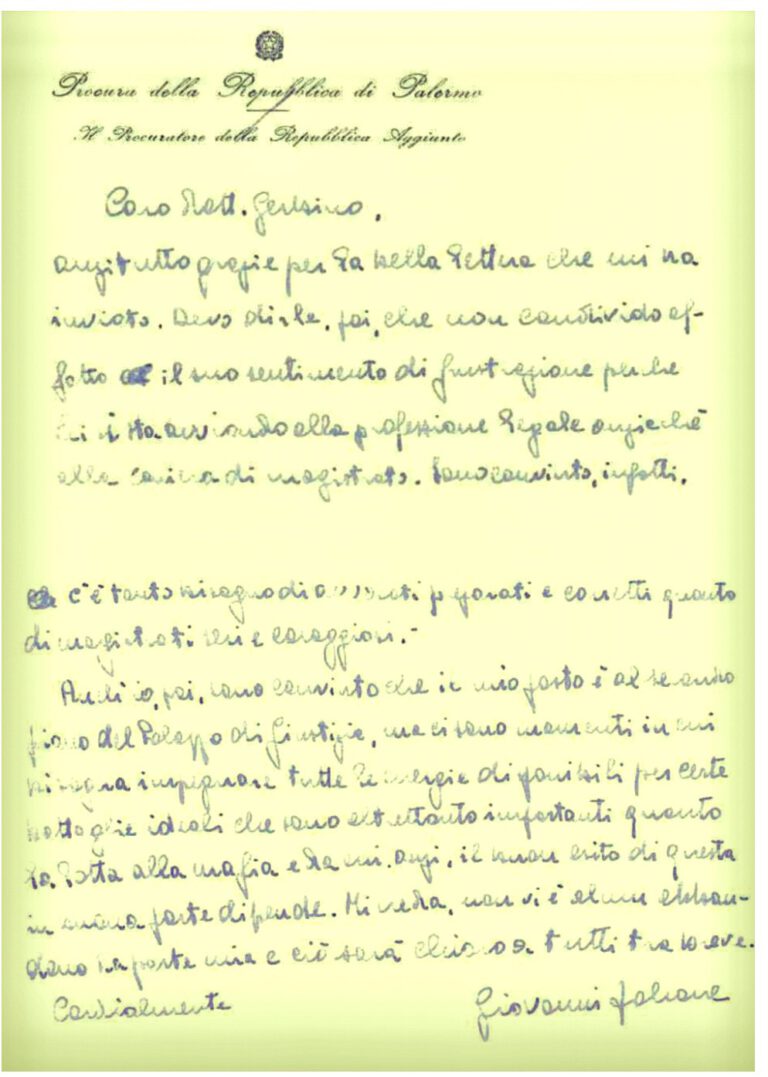 Procura della Repubblica di Palermo
Il Procuratore della Repubblica Aggiunto
Caro Dott.
anzitutto grazie per la bella lettera che mi ha
inviato. Devo dirle, poi, che non condivido af-
fatto il suo sentimento di frustrazione perché
Lei si sta avviando alla professione legale anziché
alla carriera di magistrato. Sono convinto, infatti,
c'è tanto bisogno di avvocati preparati e corretti quanto
di magistrati seri e coraggiosi.-
Anch'io, poi, sono convinto che il mio posto è al secondo
piano del Palazzo di Giustizia, ma ci sono momenti in cui
bisogna impegnare tutte le energie disponibili per certe
battaglie ideali che sono altrettanto importanti quanto
la lotta alla mafia e da cui, anzi, il buon esito di questa
in buona parte dipende. Mi creda, non vi è alcun abban-
dono da parte mia e ciò sarà chiaro a tutti tra breve.
Cordialmente
Giovanni Falcone